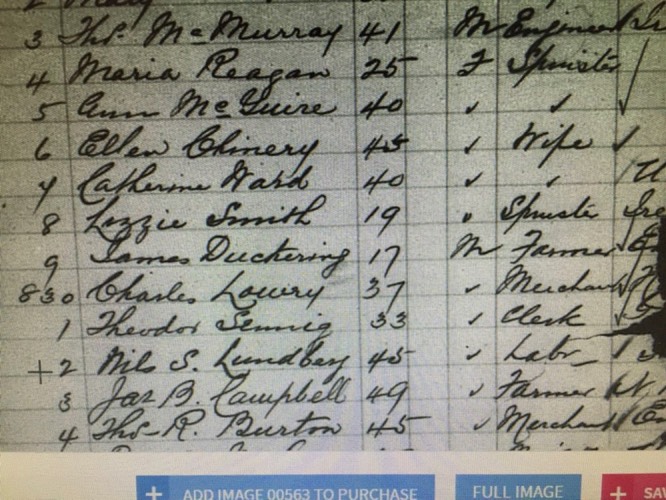 3 Thos. McMurray 41 M Engineer
4 Maria Reagan 25 F Spinster
5 Ann McGuire 40 " "
6 Ellen Chinery 45 " Wife
7 Catherine Ward 40 " " U
8 Lizzie Smith 19 " Spinster Ire
9 James Duckering 17 M Farmer
830 Charles Lowry 37 " Merchant
1 Theodor Sennig 33 " Clerk
+2 Nils S. Lundberg 45 " Labr
3 Jas B. Campbell 49 " Farmer
4 Thos. R. Burton 45 " Merchant
+ ADD IMAGE 00563 TO PURCHASE FULL IMAGE + SAV